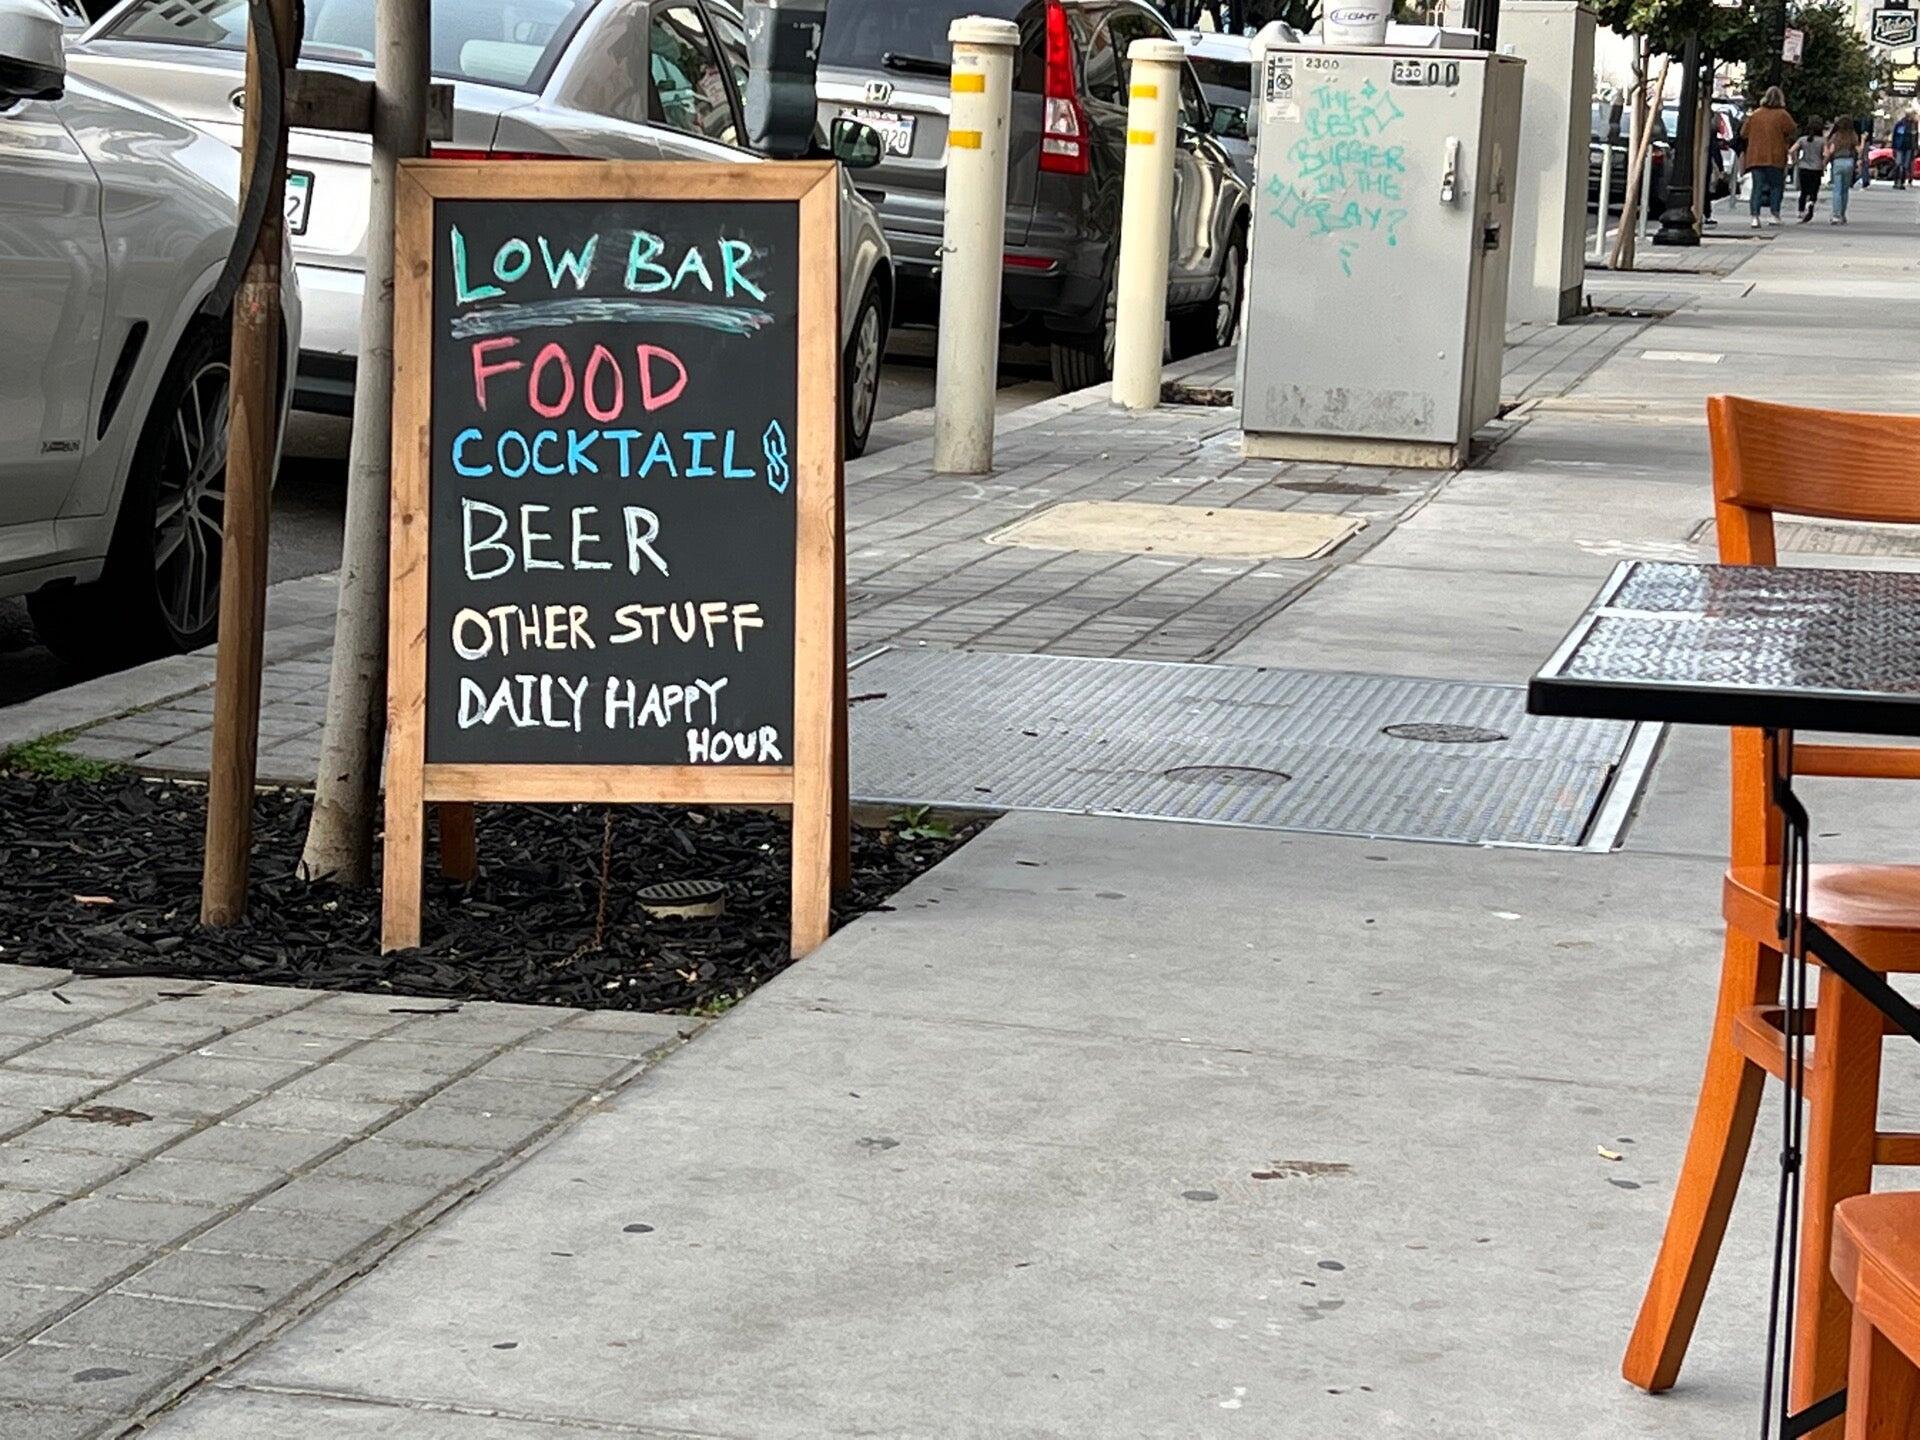 LOW BAR
FOOD
COCKTAILS
BEER
OTHER STUFF
DAILY HAPPY
HOUR
LIGHT
2300
230 00
THE
BEST
BURGER
IN THE
BAY?